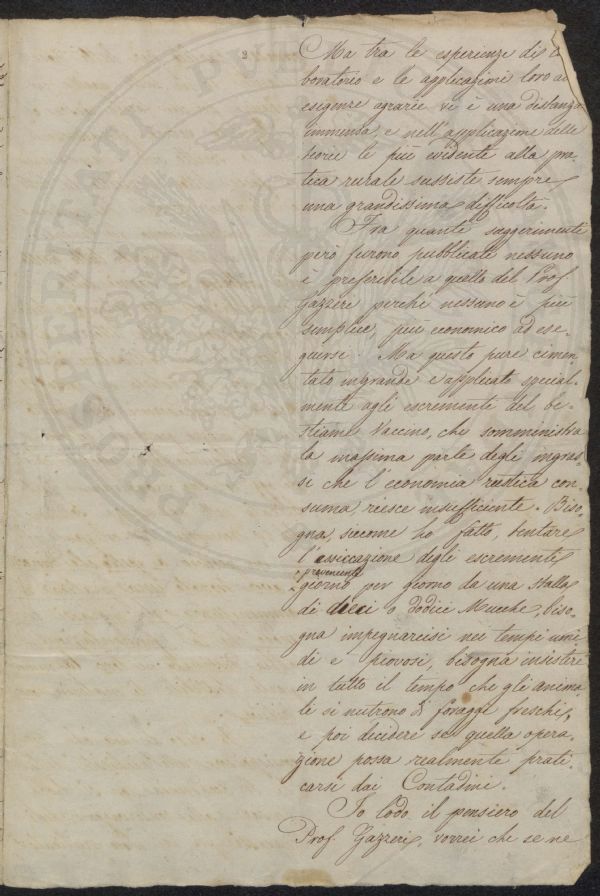 2
Ma tra le esperienze di la-
boratorio e le applicazioni loro ad
esigenze agrarie vi è una distanza
immensa, e nell'applicazione delle
teorie le più evidente alla pra-
tica rurale sussiste sempre
una grandissima difficoltà.
Fra quante suggerimenti
però furono pubblicate nessuno
è preferibile a quello del Prof
Gazzeri perché nessuno è più
semplice, più economico ad ese-
guirsi. Ma questo pure cimen-
tato ingrande e applicato special-
mente agli escremente del be-
stiame Vaccino, che somministra
la massima parte degli ingras-
si che l'economia rustica con-
suma, riesce insufficiente. Biso-
gna, siccome ho fatto, tentare
l'assiccazione degli escremente
provenienti
giorno per giorno da una stalla
di dieci o dodici Mucche, biso-
gna impegnarcisi nei tempi umi-
di e piovosi, bisogna insistere
in tutto il tempo che gli anima-
li si nutrono di foraggi freschi,
e poi decidere se quella opera-
zione possa realmente prati-
carsi dai Contadini.
Io lodo il pensiero del
Prof. Gazzeri, vorrei che se ne
PROSPERITATI PVB